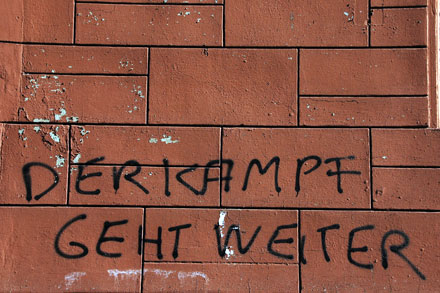 DER KAMPF
GEHT WEITER